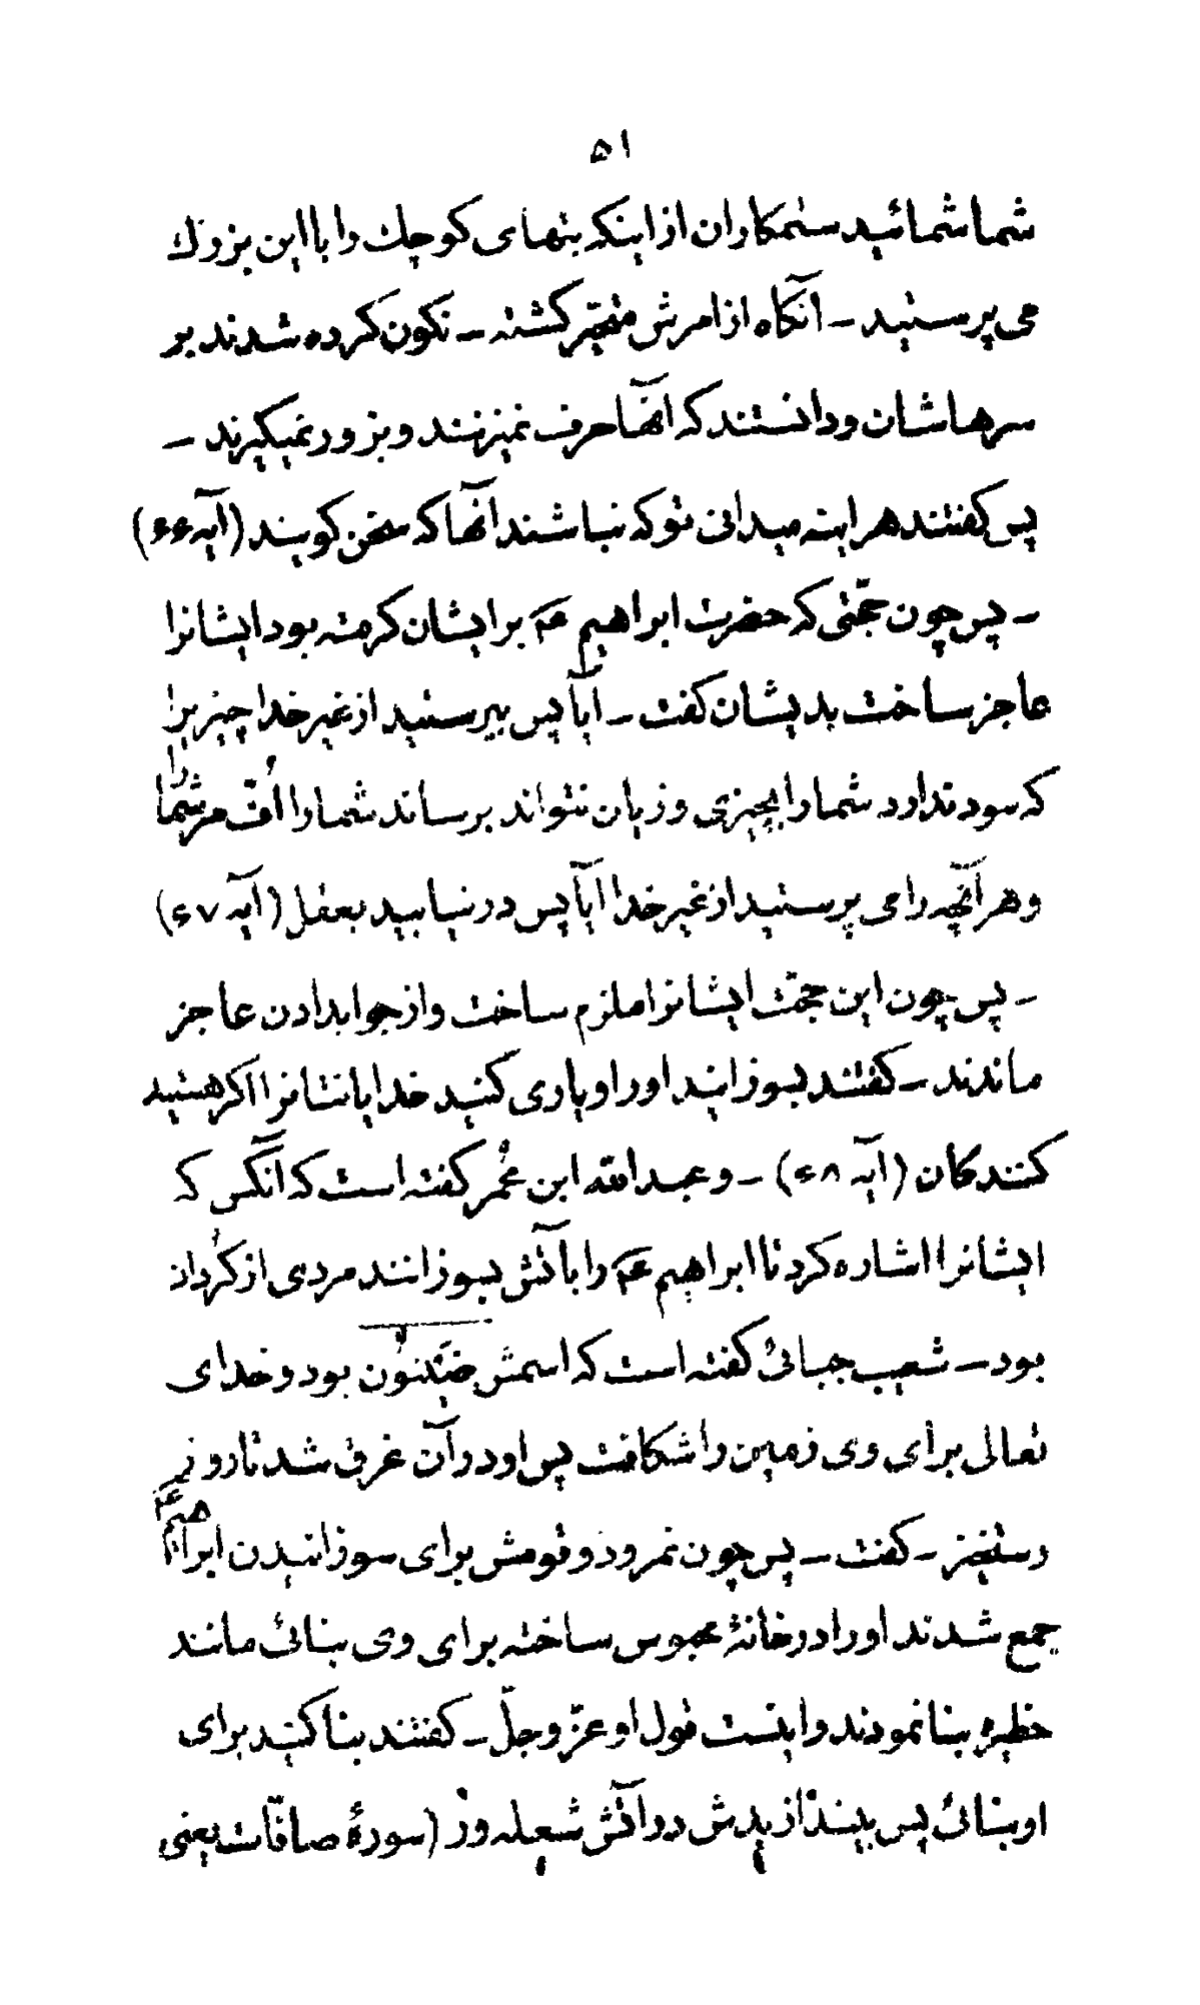 ۵۱
شما شمائید ستمکاران از اینکه بتهای کوچک را با این بزرگ
می پرستید – آنگاه از امرش متحیر گشته – نگون کرده شدند بر
سرهاشان و دانستند که آنها حرف نمیزنند و بزور نمیگیرند –
پس گفتند هر اینه میدانی تو که نباشند آنها که سخن گویند (آیه ۶۶)
– پس چون حجّتی که حضرت ابراهیم ع برایشان گرفته بود ایشانرا
عاجز ساخت بدیشان گفت – آیا پس میپرستید از غیر خدا چیزیرا
که سود ندارد شما را بچیزی و زیان نتواند برساند شما را اُفّ مر شما را
و هر آنچه را می پرستید از غیر خدا آیا پس در نیابید بعقل (آیه ۶۷)
– پس چون این حجّت ایشانرا ملزم ساخت و از جوابدادن عاجز
ماندند – گفتند بسوزانید او را و یاری کنید خدایانتانرا اگر هستید
کنندگان (آیه ۶۸) – و عبدالله ابن عُمر گفته است که آنکس که
ایشانرا اشاره کرد تا ابراهیم ع را با آتش بسوزانند مردی از کُردان
بود – شعیب جبائی گفته است که اسمش هَیَنُون بود و خدای
تعالی برای وی زمین را شکافت پس او در آن غرق شد تا روز
رستخیز – گفت – پس چون نمرود و قومش برای سوزانیدن ابراهیم ع
جمع شدند او را در خانهٔ محبوس ساخته برای وی بنائی مانند
حظیره بنا نمودند و اینست قول او عزّ و جلّ – گفتند بنا کنید برای
او بنائی پس بیندازیدش در آتش شعله ور (سورهٔ صافّات یعنی